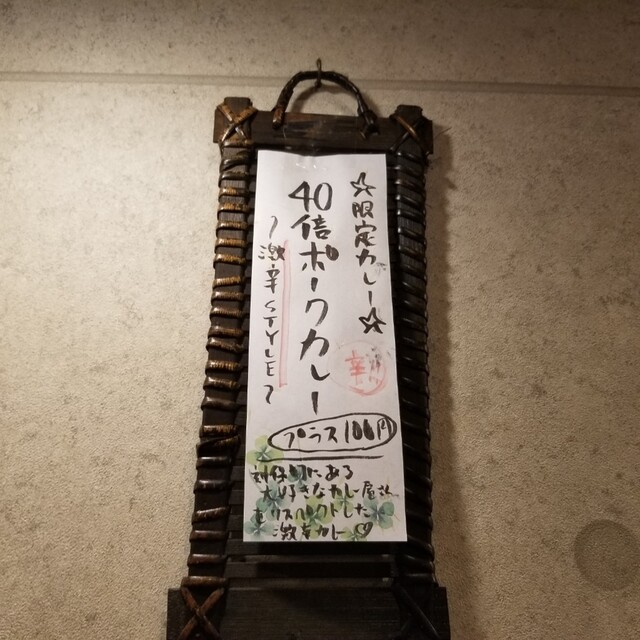 ☆限定カレー☆
40倍ポークカレー
〜激辛STYLE〜
辛
プラス100円
にある
大好きなカレー屋さ
をリスペクトした
激辛カレー♡